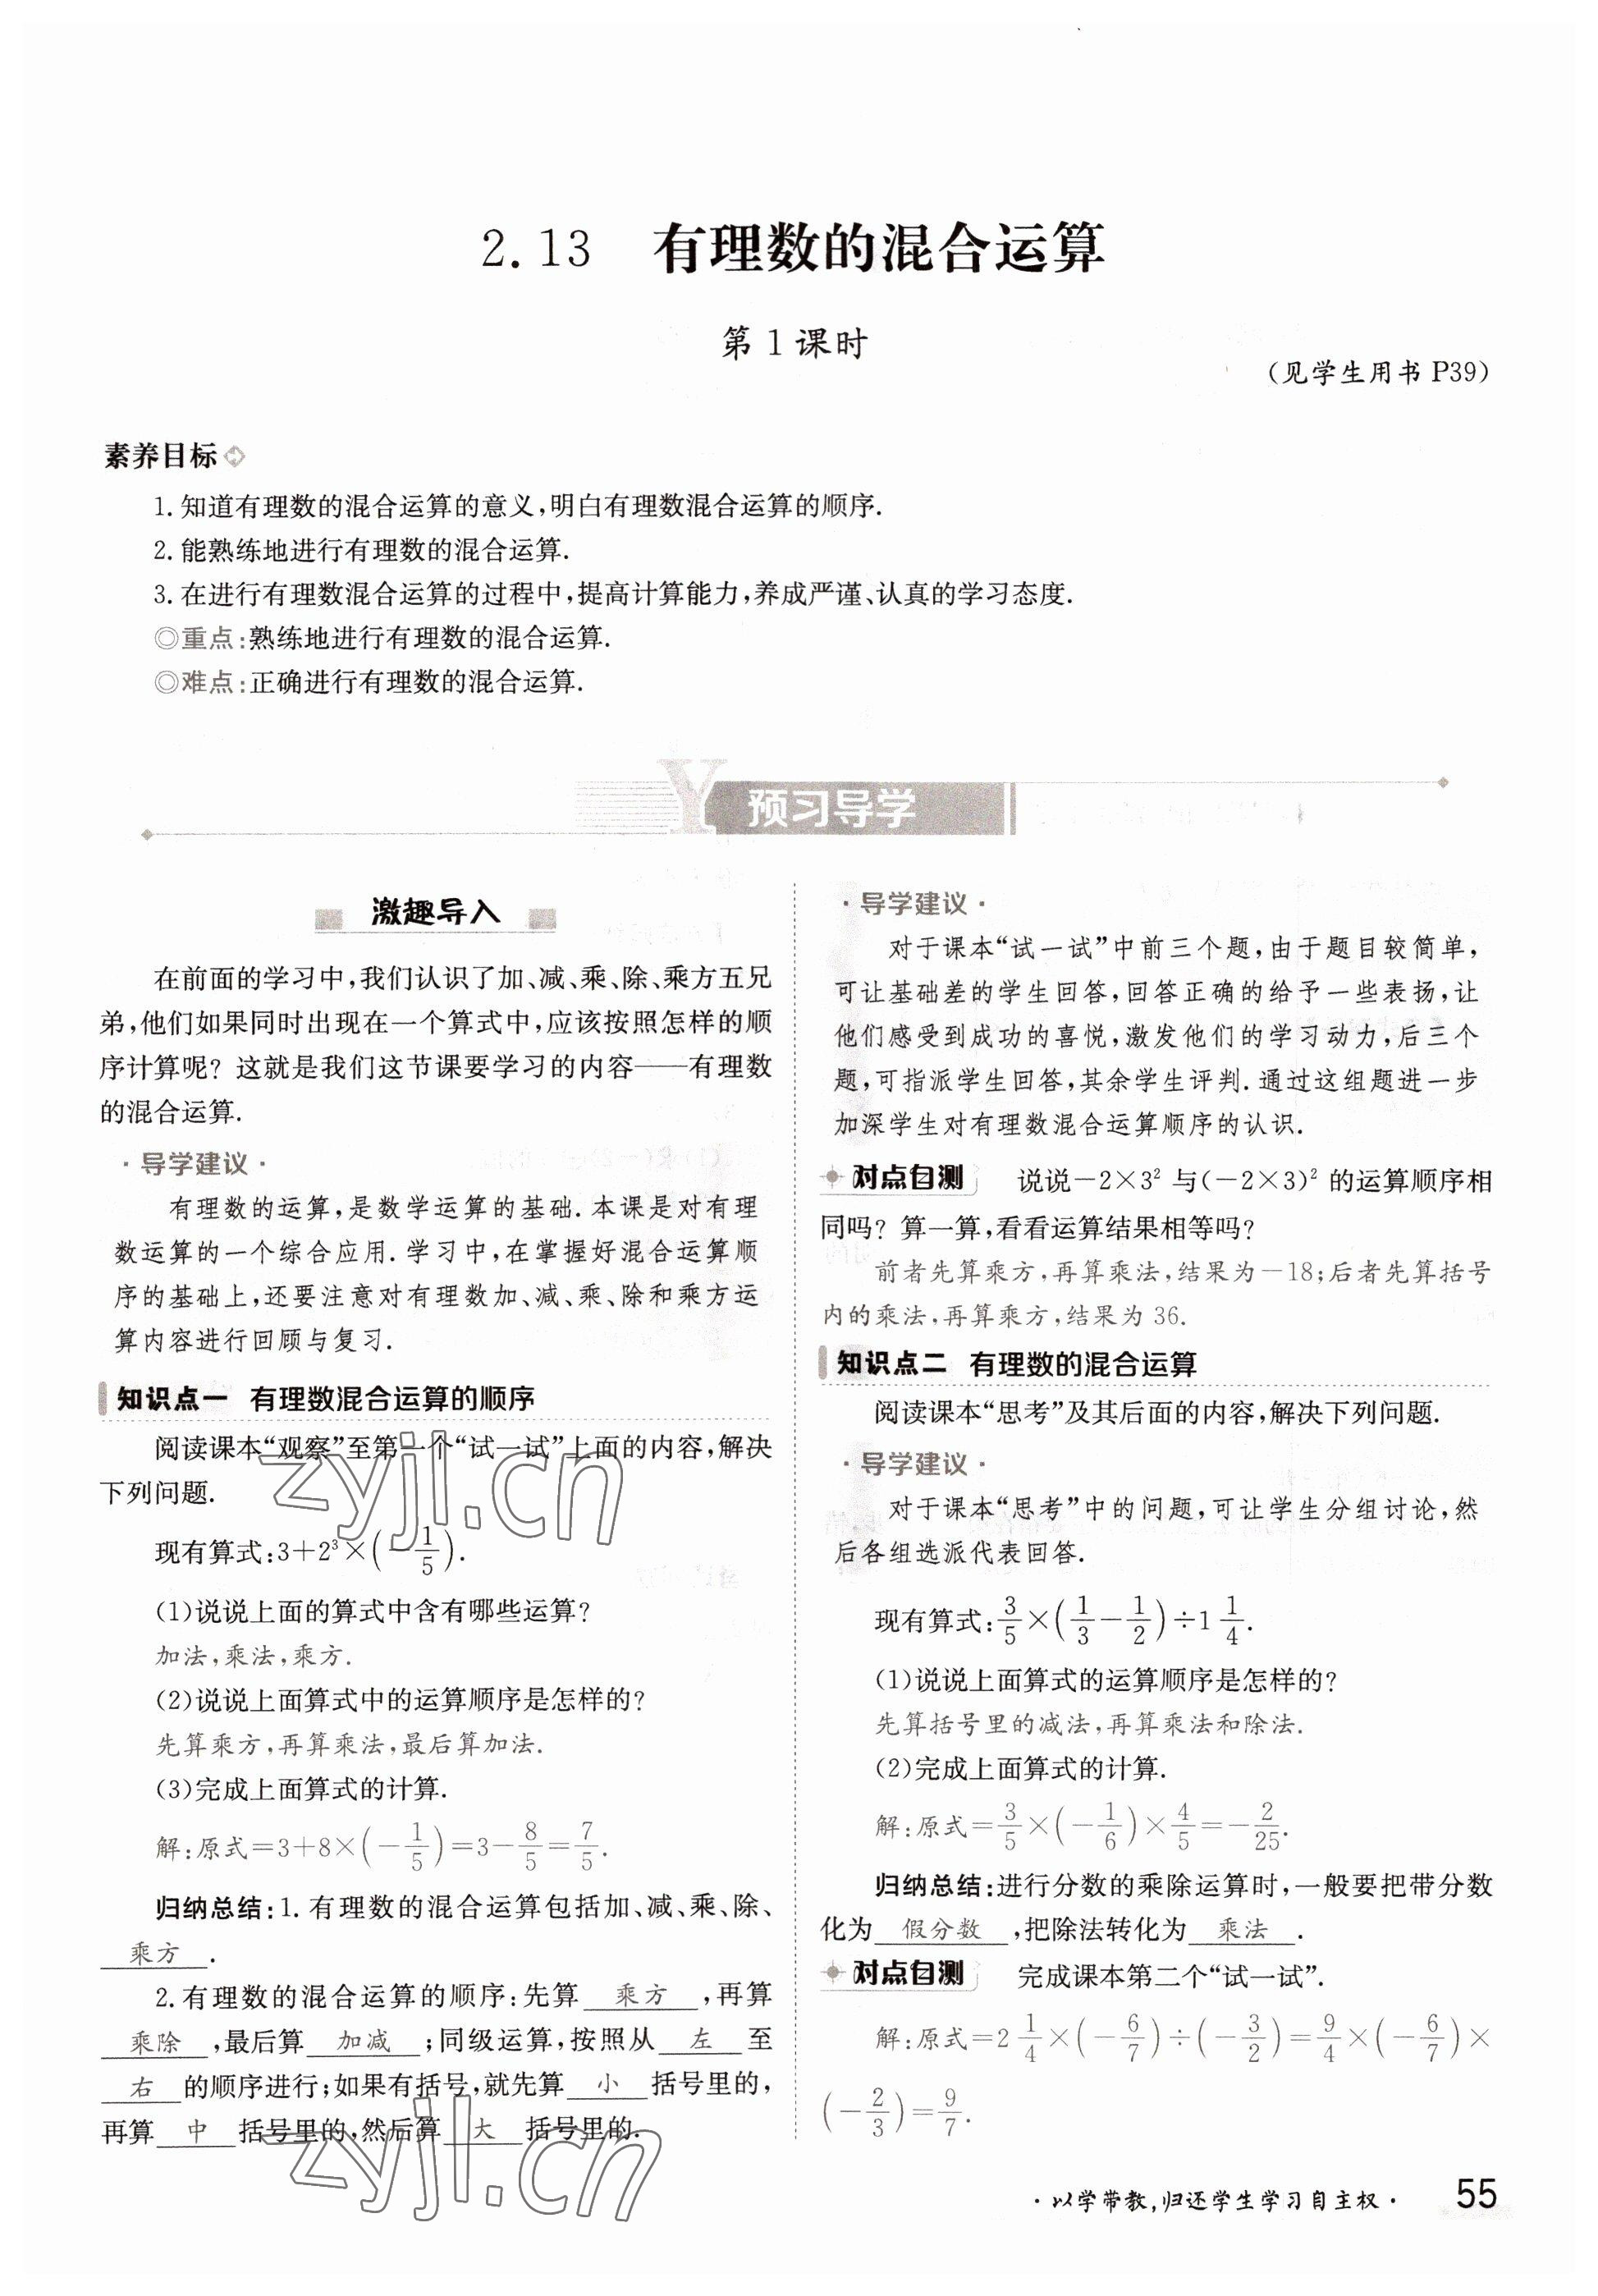 2.13 有理数的混合运算
第1课时
(见学生用书 P39)
素养目标
1.知道有理数的混合运算的意义,明白有理数混合运算的顺序.
2.能熟练地进行有理数的混合运算.
3.在进行有理数混合运算的过程中,提高计算能力,养成严谨、认真的学习态度.
◎重点:熟练地进行有理数的混合运算.
◎难点:正确进行有理数的混合运算.
Y 预习导学
激趣导入
在前面的学习中,我们认识了加、减、乘、除、乘方五兄
弟,他们如果同时出现在一个算式中,应该按照怎样的顺
序计算呢? 这就是我们这节课要学习的内容——有理数
的混合运算.
·导学建议·
有理数的运算,是数学运算的基础.本课是对有理
数运算的一个综合应用.学习中,在掌握好混合运算顺
序的基础上,还要注意对有理数加、减、乘、除和乘方运
算内容进行回顾与复习.
知识点一 有理数混合运算的顺序
阅读课本“观察”至第一个“试一试”上面的内容,解决
下列问题.
现有算式:3+2³×(-1/5).
(1)说说上面的算式中含有哪些运算?
加法,乘法,乘方.
(2)说说上面算式中的运算顺序是怎样的?
先算乘方,再算乘法,最后算加法.
(3)完成上面算式的计算.
解:原式=3+8×(-1/5)=3-8/5=7/5.
归纳总结:1.有理数的混合运算包括加、减、乘、除、
乘方.
2.有理数的混合运算的顺序:先算 乘方 ,再算
乘除 ,最后算 加减 ;同级运算,按照从 左 至
右 的顺序进行;如果有括号,就先算 小 括号里的,
再算 中 括号里的,然后算 大 括号里的.
·导学建议·
对于课本“试一试”中前三个题,由于题目较简单,
可让基础差的学生回答,回答正确的给予一些表扬,让
他们感受到成功的喜悦,激发他们的学习动力,后三个
题,可指派学生回答,其余学生评判.通过这组题进一步
加深学生对有理数混合运算顺序的认识.
对点自测 说说-2×3²与(-2×3)²的运算顺序相
同吗? 算一算,看看运算结果相等吗?
前者先算乘方,再算乘法,结果为-18;后者先算括号
内的乘法,再算乘方,结果为36.
知识点二 有理数的混合运算
阅读课本“思考”及其后面的内容,解决下列问题.
·导学建议·
对于课本“思考”中的问题,可让学生分组讨论,然
后各组选派代表回答.
现有算式:3/5×(1/3-1/2)÷1 1/4.
(1)说说上面算式的运算顺序是怎样的?
先算括号里的减法,再算乘法和除法.
(2)完成上面算式的计算.
解:原式=3/5×(-1/6)×4/5=-2/25.
归纳总结:进行分数的乘除运算时,一般要把带分数
化为 假分数 ,把除法转化为 乘法 .
对点自测 完成课本第二个“试一试”.
解:原式=2 1/4×(-6/7)÷(-3/2)=9/4×(-6/7)×
(-2/3)=9/7.
·以学带教,归还学生学习自主权· 55
zyjl.cn
zyjl.cn